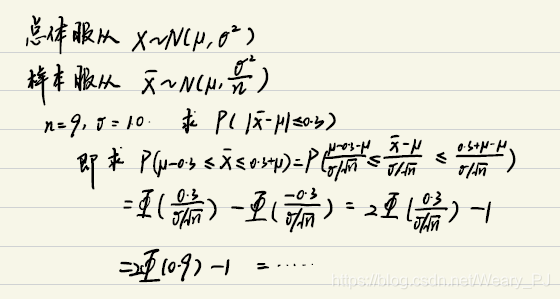 总体服从 X~N(μ, σ²)
样本服从 X̄~N(μ, σ²/n)
n=9, σ=10. 求 P(|X̄-μ|≤0.3)
即求 P(μ-0.3 ≤ X̄ ≤ 0.3+μ)=P(μ-0.3-μ/σ/√n ≤ X̄-μ/σ/√n ≤ 0.3+μ-μ/σ/√n)
=Φ(0.3/σ/√n) - Φ(-0.3/σ/√n) = 2Φ(0.3/σ/√n) -1
=2Φ(0.9) -1 = ······
https://blog.csdn.net/Weary_PJ